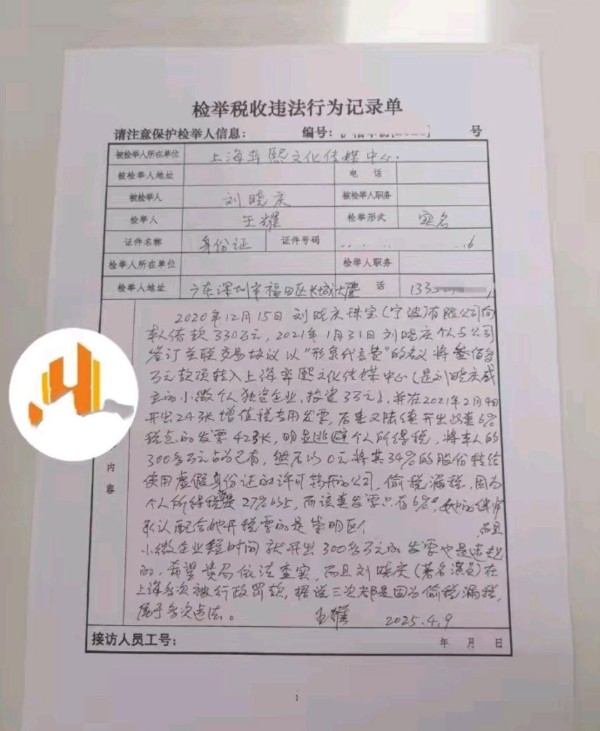 检举税收违法行为记录单
请注意保护检举人信息: 编号: 号
被检举人所在单位 上海弈熙文化传媒中心.
被检举人地址 电 话
被检举人 刘晓庆 被检举人职务
检举人 王耀 检举形式 实名
证件名称 身份证 证件号码 6
检举人所在单位 检举人职务
检举人地址 广东深圳市福田区长城 话 133
内容
2020年12月15日刘晓庆珠宝(宁波)有限公司向
本人借款330万元,2021年1月31日刘晓庆个人与公司
签订关联交易协议以"形象代言费"的名义将叁佰多
万元款项转入上海弈熙文化传媒中心(是刘晓庆成
立的小微个人独资企业,投资3万元),并在2021年2月4日
开出24张增值税专用发票,后来又陆续开出这类6%
税点的发票42张,明显逃避个人所得税,将本人的
300多万元占为己有,然后以0元将其34%的股份转给
使用虚假身份证的许可转移的公司,偷税漏税,因为
个人所得税是27%-35,而这类发票只有6%,她的律师
承认配合她开税票的是崇明区 而且
小微企业短时间就开出300多万元的发票也是违规
的,希望贵局依法查实,而且刘晓庆(著名演员)在
上海多次被行政罚款,据说三次都是因为偷税漏税,
属于多次违法。 王耀 2025.4.9
接访人员工号: 年 月 日
1